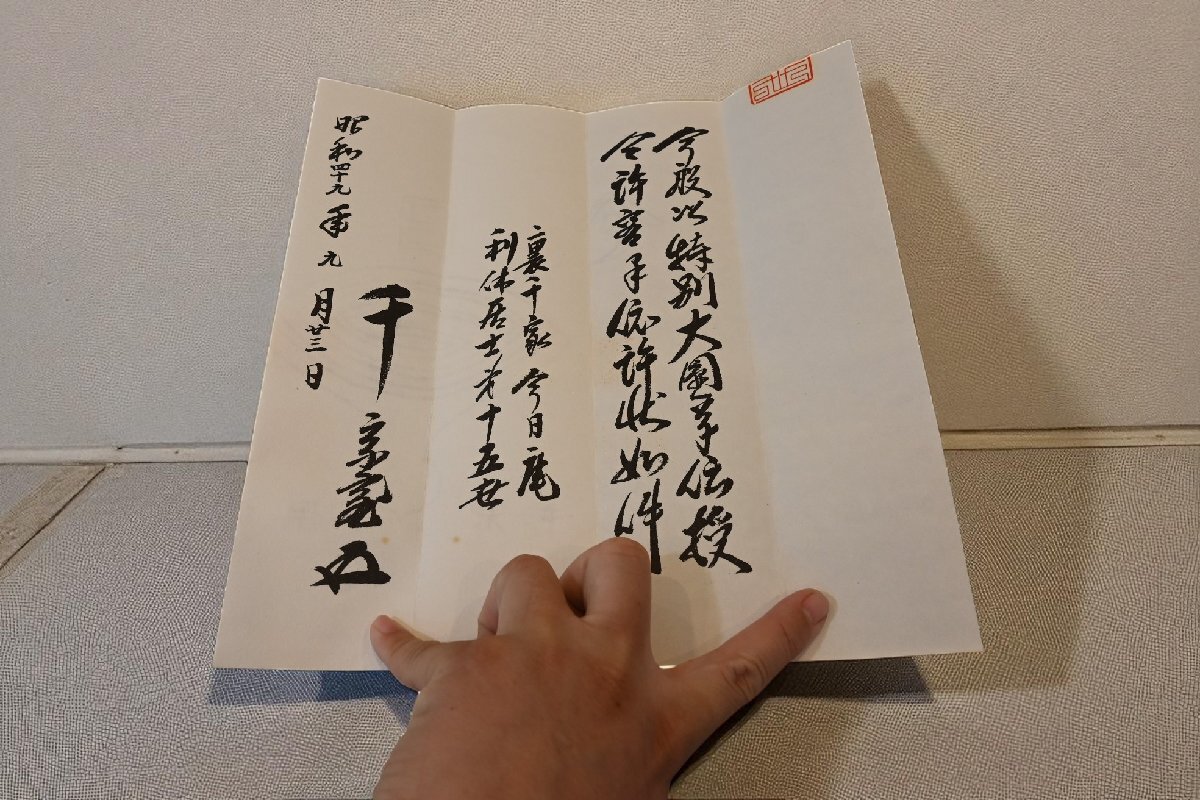 今般以特別大圓草伝授
令許容畢仍許状如件
裏千家 今日庵
利休居士第十五世
千宗室
昭和四十九年九月廿三日